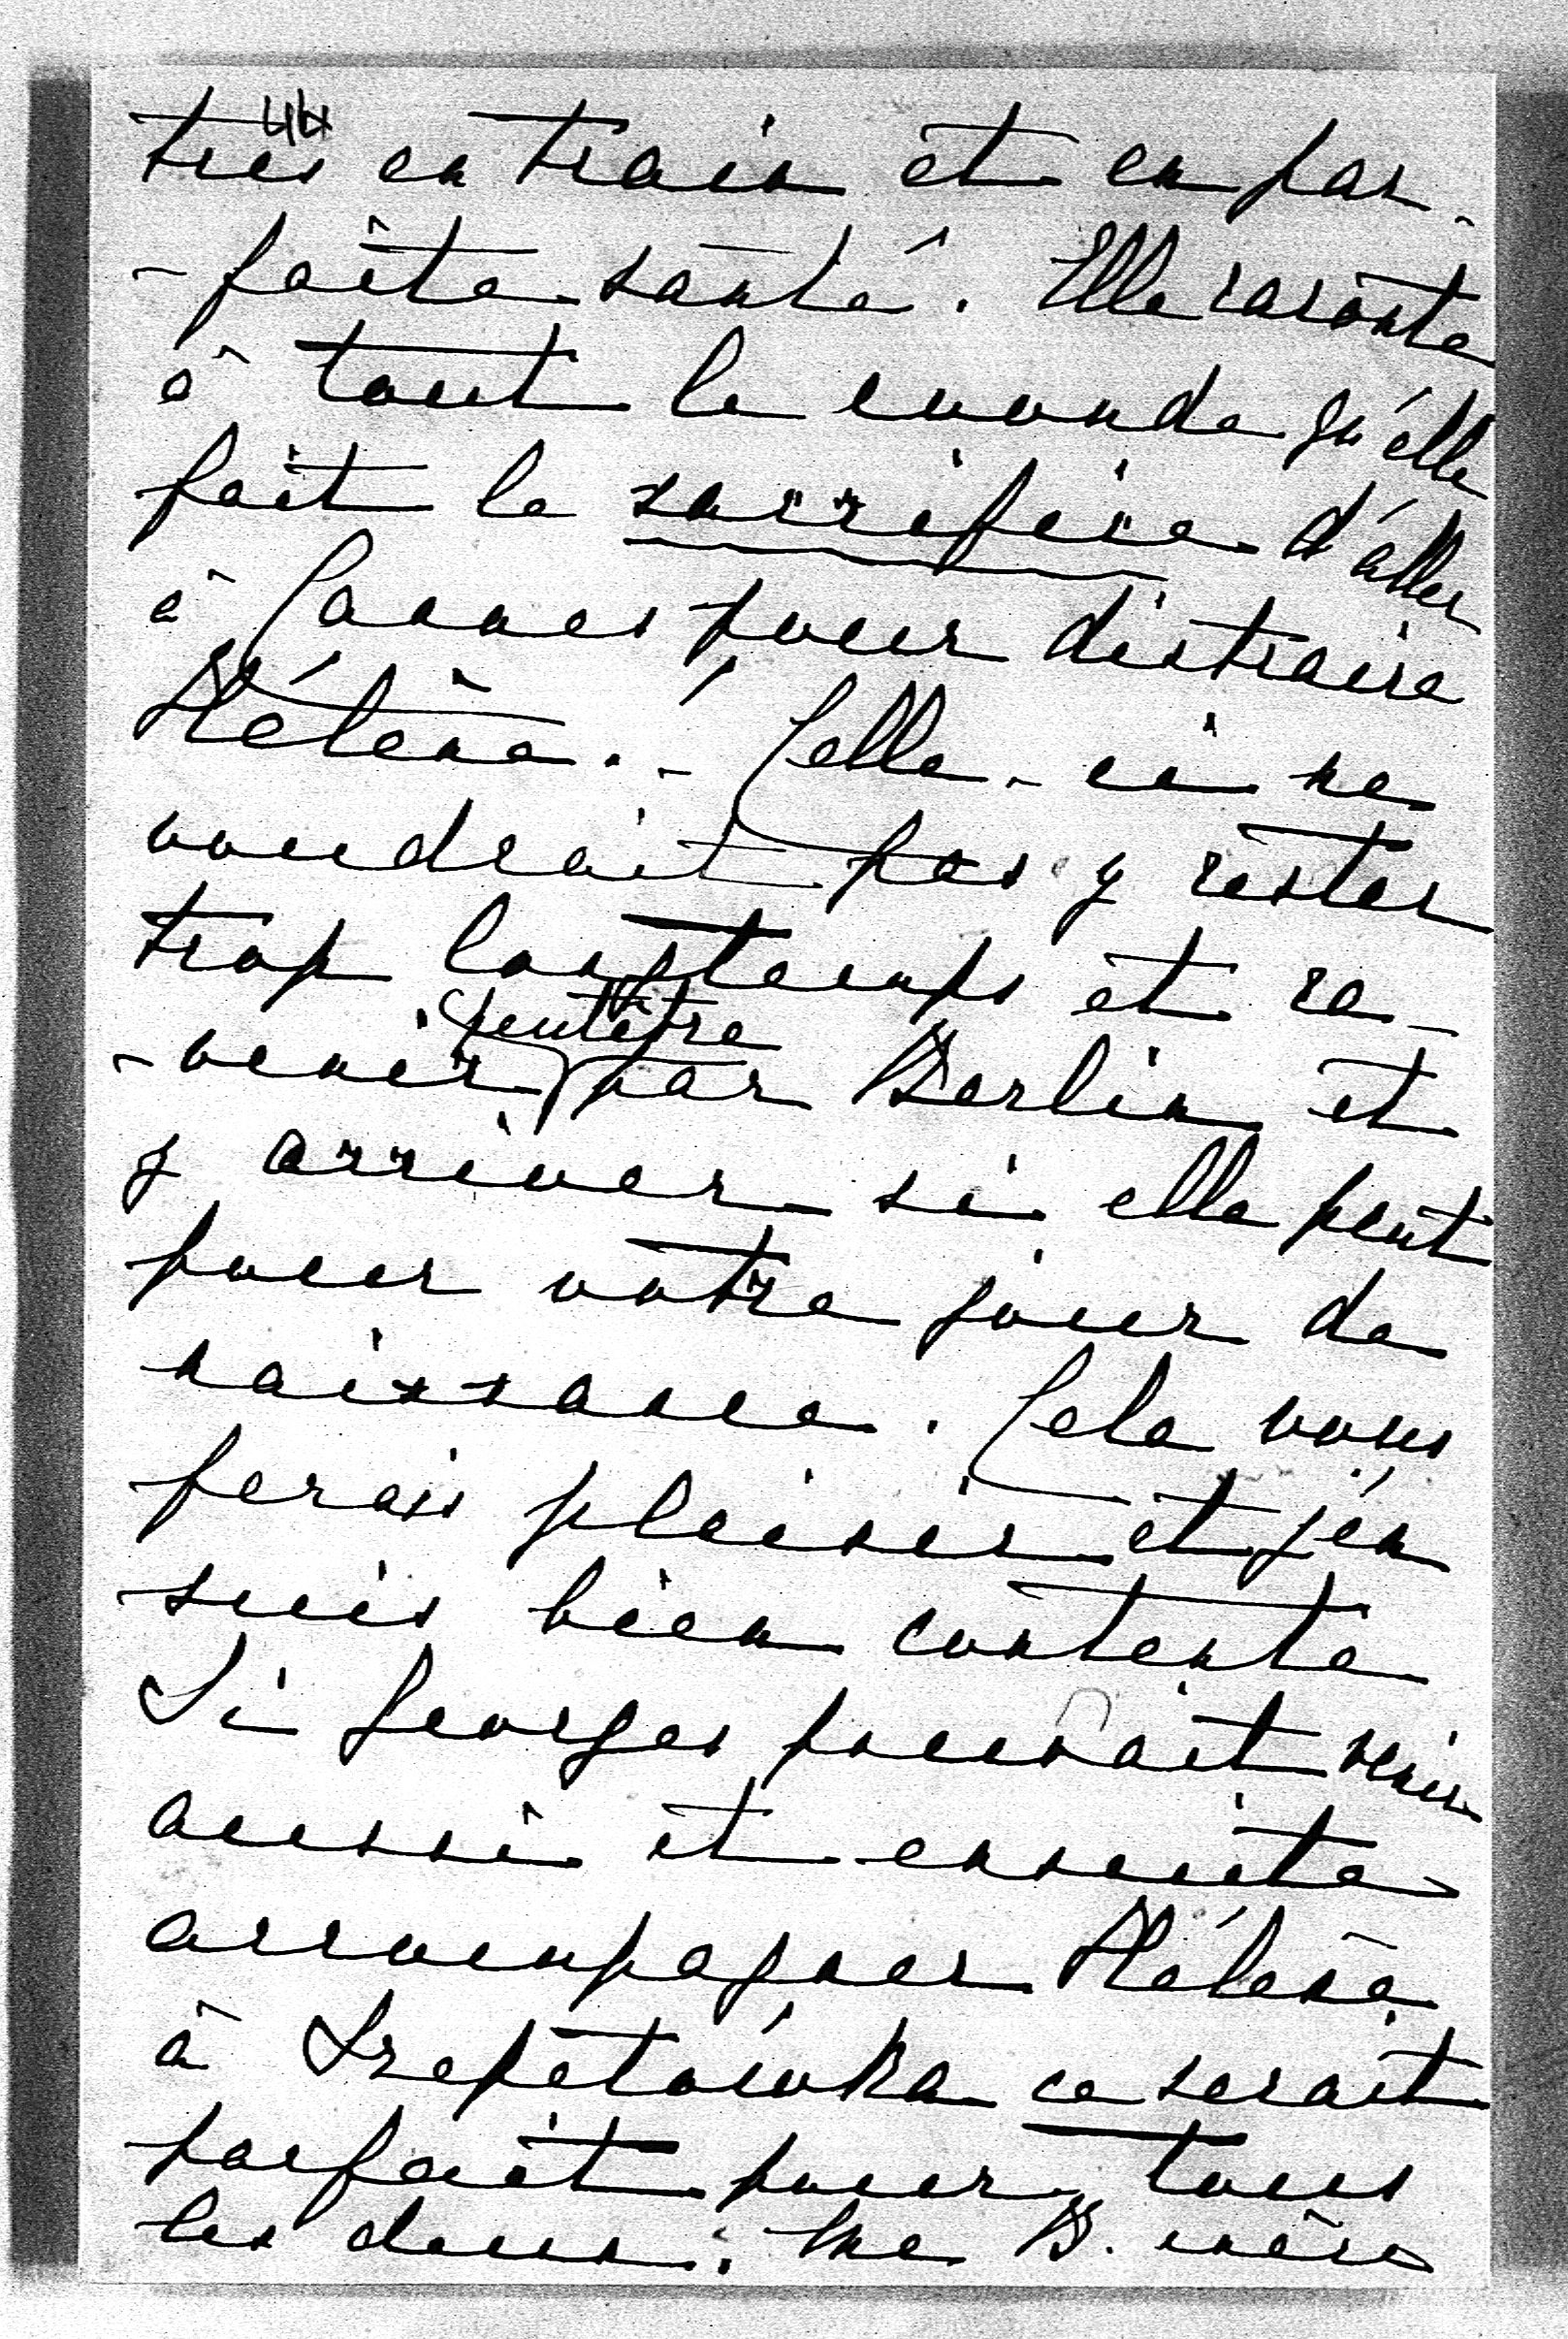 44
très en train et en par-
-faite santé. Elle raconte
à tout le monde qu'elle
fait le sacrifice d'aller
à Cannes pour distraire
Hélène. - Celle-ci ne
voudrait pas y rester
trop longtemps et re-
peutêtre
-venir par Berlin et
y arriver si elle peut
pour votre jour de
naissance. Cela vous
ferais plaisir et j'en
suis bien contente
Si Georges pouvait venir
aussi et ensuite
accompagner Hélène
à Srepetowka ce serait
parfait pour tous
les deux. Me B. mère